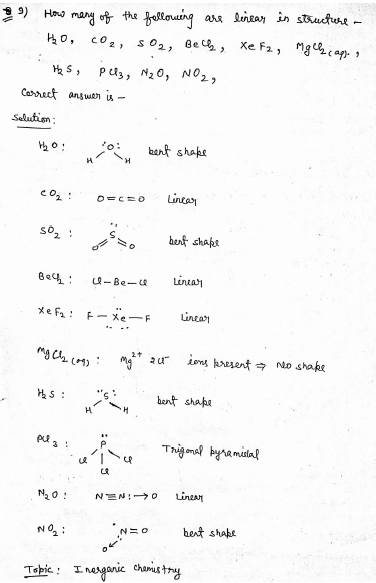 9) How many of the following are linear in structure -
H2O, CO2, SO2, BeCl2, XeF2, MgCl2(aq).,
H2S, PCl3, N2O, NO2,
Correct answer is -
Solution:
H2O : :O: H H bent shape
CO2 : O=C=O Linear
SO2 : S O O bent shape
BeCl2 : Cl-Be-Cl Linear
XeF2 : F-Xe-F Linear
MgCl2(aq) : Mg2+ 2Cl- ions present ⇒ No shape
H2S : :S: H H bent shape
PCl3 : P Cl Cl Cl Trigonal pyramidal
N2O : N≡N:→O Linear
NO2 : N=O O bent shape
Topic : Inorganic chemistry